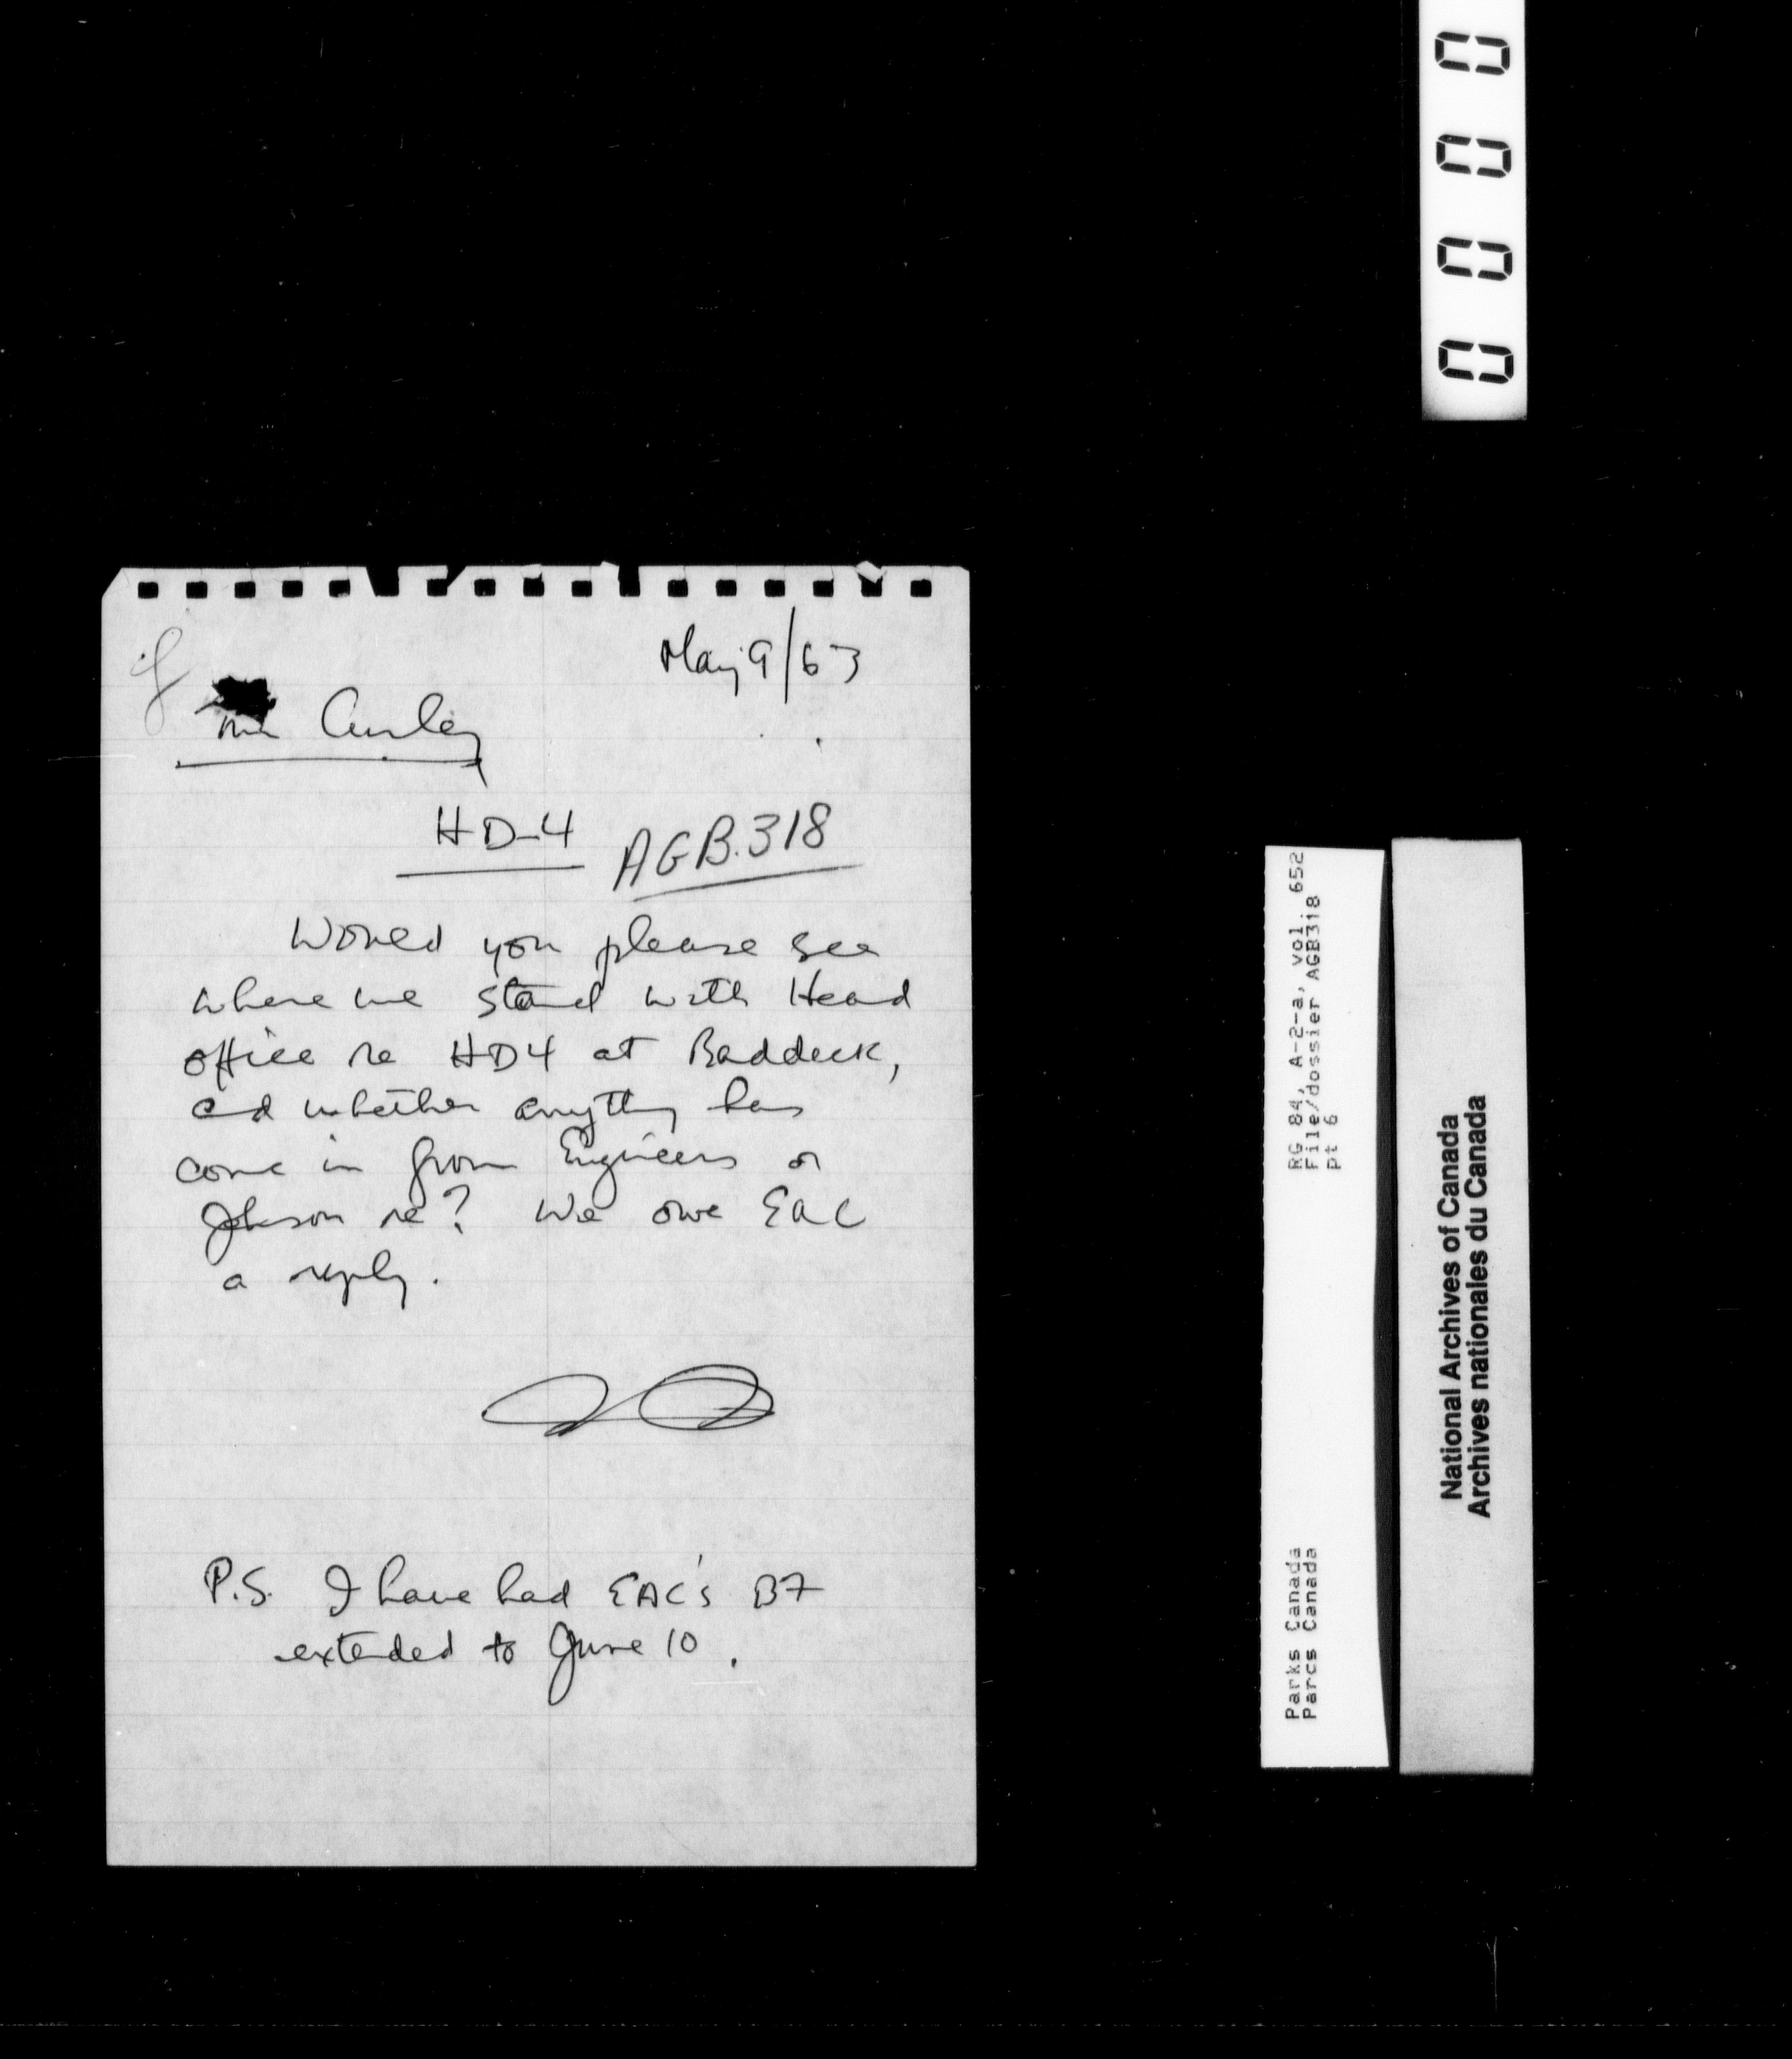 0000
May 9/63
Mr Curley
HD-4 AGB.318
Would you please see
where we stand with Head
office re HD4 at Baddeck,
and whether anything has
come in from Engineers or
Johnson re? We owe EAC
a reply.
P.S. I have had EAC's BF
extended to June 10.
RG 84, A-2-a, vol. 652
File/dossier AGB318
pt 6
Parks Canada
Parcs Canada
National Archives of Canada
Archives nationales du Canada